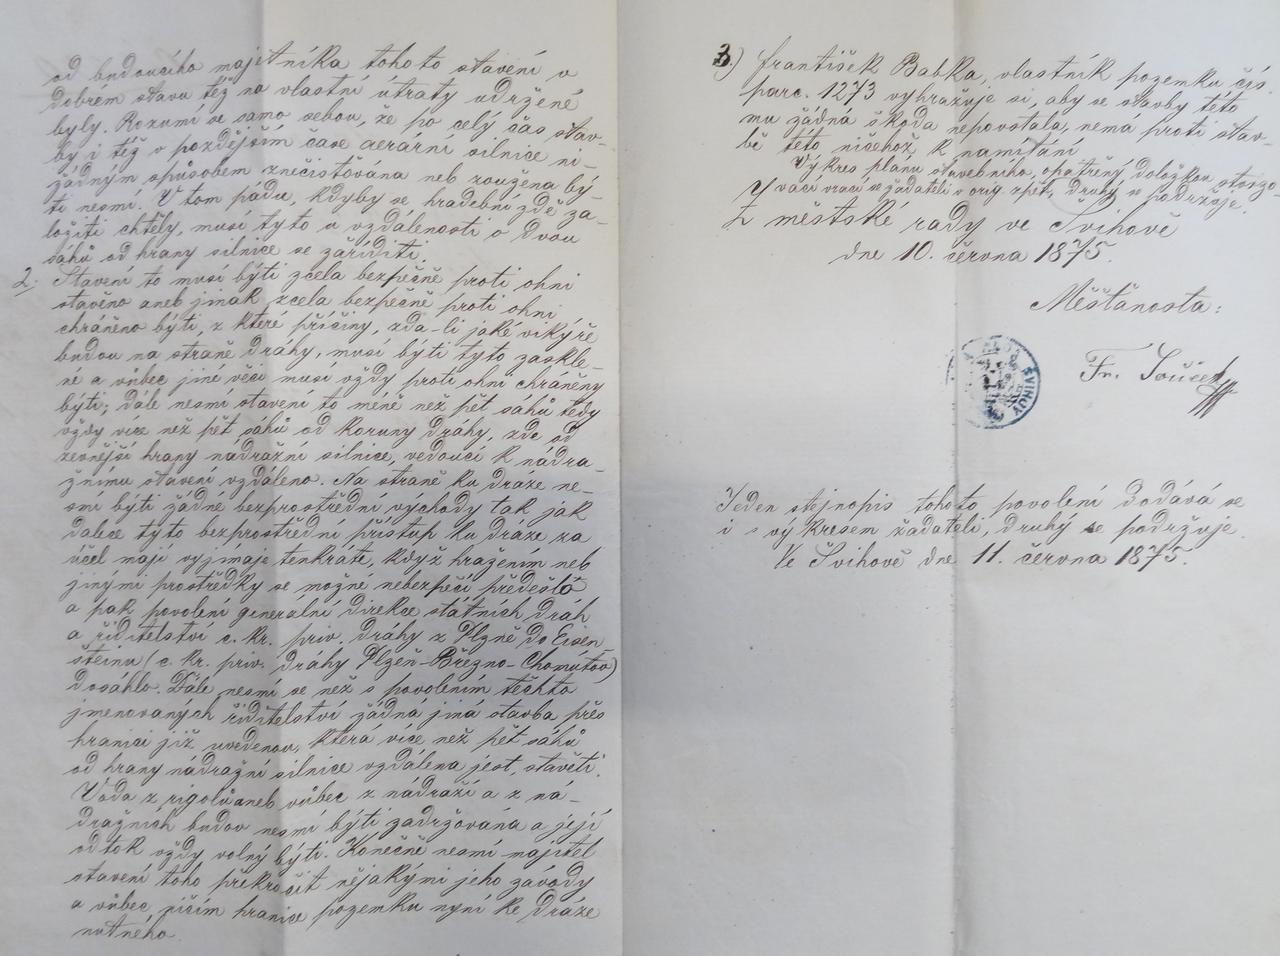 od budoucího majitníka tohoto stavení v
dobrém stavu též na vlastní útraty udržené
byly. Rozumí se samo sebou, že po celý čas stav-
by i též v pozdějším čase aerární silnice ni-
žádným spůsobem znečistěována neb zoužena bý-
ti nesmí. V tom pádu, kdyby se hradební zdě za-
ložiti chtěly, musí tyto u vzdálenosti o dvou
sáhů od hrany silnice se zaříditi.
2. Stavení to musí býti zcela bezpečně proti ohni
stavěno aneb jinak zcela bezpečně proti ohni
chráněno býti, z které příčiny, zda-li jaké vikýře
budou na straně dráhy, musí býti tyto zaskle-
né a vůbec jiné věci musí vždy proti ohni chráněny
býti; dále nesmí stavení to méně než pět sáhů tedy
vždy více než pět sáhů od koruny dráhy, zde od
zevnější hrany nádražní silnice, vedoucí k nádra-
žnímu stavení vzdáleno. Na straně ku dráze ne-
smí býti žádné bezprostřední východy tak jak
dalece tyto bezprostřední přístup ku dráze za
účel mají vyjímaje tenkráte, když hražením neb
jinými prostředky se možné nebezpečí předešlo
a pak povolení generální direkce státních drah
a řiditelství c. kr. priv. dráhy z Plzně do Eisen-
šteinu (c. kr. priv. dráhy Plzeň-Březno-Chomutov)
dosáhlo. Dále nesmí se než s povolením těchto
jmenovaných řiditelství žádná jiná stavba přes
hranici již uvedenou, která více než pět sáhů
od hrany nádražní silnice vzdálena jest, stavěti.
Voda z rigolů aneb vůbec z nádraží a z ná-
dražních budov nesmí býti zadržována a její
odtok vždy volný býti. Konečně nesmí majitel
stavení toho překročit nějakými jeho závody
a vůbec ničím hranice pozemku nyní ke dráze
nutného.
3.) František Babka, vlastník pozemku čís.
parc. 1273 vyhražuje si, aby se stavby této
mu žádná škoda nepovstala, nemá proti stav-
bě této ničehož k namítání
Výkres plánu stavebního, opatřený doložkou
se žadateli v orig. zpět, druhý se podržuje.
Z městské rady ve Švihově
dne 10. června 1875.
Měšťanosta:
Fr. Souček
Jeden stejnopis tohoto povolení dodává se
i s výkresem žadateli, druhý se podržuje.
Ve Švihově dne 11. června 1875.